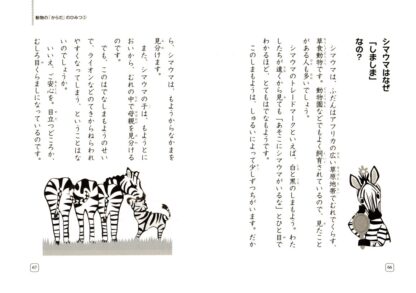 シマウマはなぜ
「しましま」
なの?
シマウマは、ふだんはアフリカの広い草原地帯でむれてくらす、
草食動物です。動物園などでもよく飼育されているので、見たこと
がある人も多いでしょう。
シマウマのトレードマークといえば、白と黒のしまもよう。わた
したちが遠くから見ても「あそこにシマウマがいるな」とひと目で
わかるほど、とてもはでなもようです。
このしまもようは、しゅるいによって少しずつちがいます。だか
66
動物の「からだ」のひみつ
ら、シマウマは、もようからなかまを
見分けます。
また、シマウマの子は、もようとに
おいから、むれの中で母親を見分ける
のです。
でも、このはでなしまもようのせい
で、ライオンなどのてきからねらわれ
やすくなってしまう、ということはな
いのでしょうか。
いいえ、ご安心を。目立つどころか、
むしろ目くらましになっているのです。
67